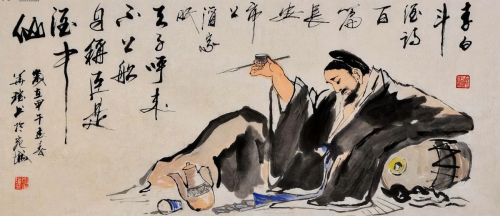 李白
斗
酒詩
百
篇
長
安
市
上
酒家
眠
天子呼来
不上船
自稱臣是
酒中
仙
歲在甲午